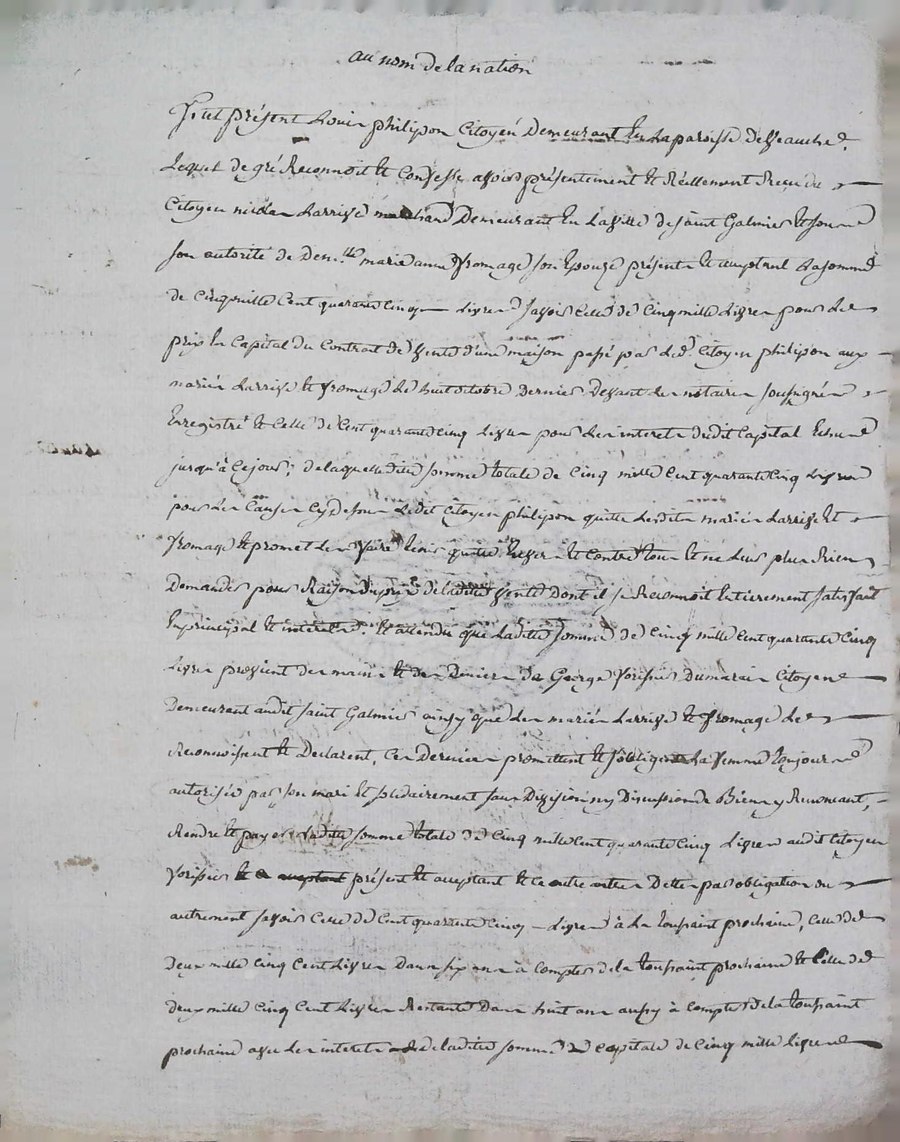 au nom de la nation
Fut présent Louis philipon Citoyen Demeurant En La paroisse de Veauche.
Lequel de gré Reconnoit et Confesse avoir présentement et Réellement Reçu du
Citoyen nicolas Larrive marchand Demeurant En La ville de saint Galmier et sous
son autorité de Dem.lle marie anne fromage son Epouze présente et acceptant La somme
de Cinq mille Cent quarante Cinq Livres savoir Celle de Cinq mille Livres pour Le
prix En Capital du Contrat de vente d'une maison passé par Led. Citoyen philipon aux
mariés Larrive et fromage Le huit octobre Dernier Devant Les notaires soussignés
Enregistré et Celle de Cent quarante Cinq Livres pour Les interets dudit Capital Echus
jusqu'à Ce jour; de laquelle dite somme totale de Cinq mille Cent quarante Cinq Livres
pour Les Causes Cy dessus Ledit Citoyen philipon quitte Lesdits mariés Larrive et
fromage et promet Les faire tenir quitte Envers et Contre tous et ne Leur plus Rien
Demander pour Raison du prix de Ladite vente Dont il se Reconnoit Entierement satisfait
En principal et interets. Et attendu que Ladite somme de Cinq mille Cent quarante Cinq
Livres provient des mains et des Deniers de George Dumarais Citoyen
Demeurant audit saint Galmier ainsy que Les mariés Larrive et fromage Le
Reconnoissent et Declarent, Ces Derniers promettent et s'obligent La femme toujours
autorisée par son mari et solidairement sans Division ny Discussion de Biens y Renonçant,
Rendre et payer Ladite somme totale de Cinq mille Cent quarante Cinq Livres audit Citoyen
présent et acceptant et Ce outre autres Dettes par obligation ou
autrement savoir Celle de Cent quarante Cinq Livres à La toussaint prochaine, Celle de
Deux mille Cinq Cent Livres Dans six ans à Compter de la toussaint prochaine et Celle de
deux mille Cinq Cent Livres Restante Dans huit ans aussy à Compter de la toussaint
prochaine avec Les interets de Ladite somme Capitale de Cinq mille Livres